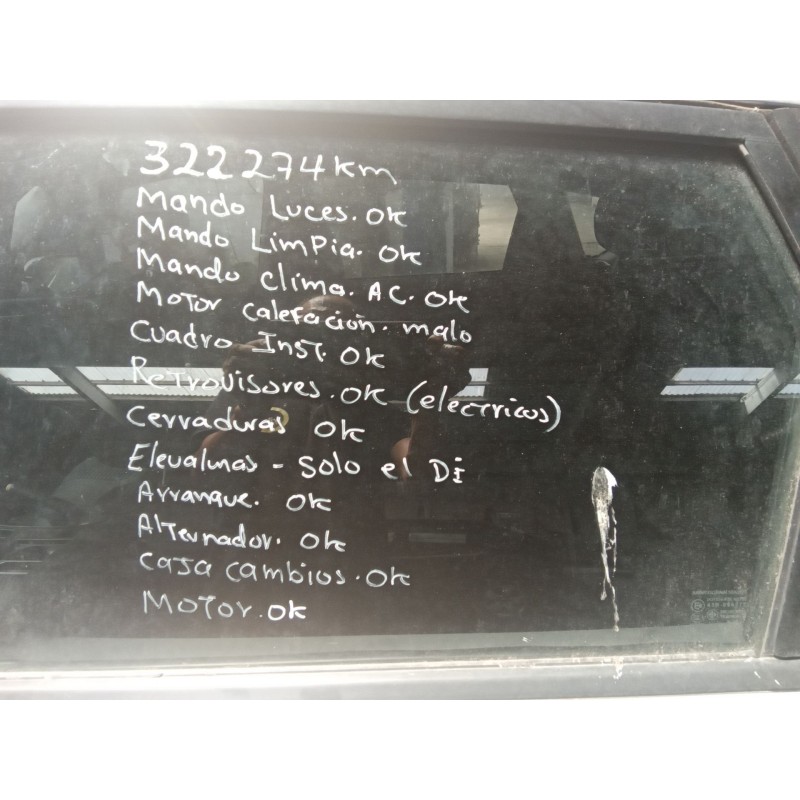 322274km
Mando Luces. ok
Mando Limpia. ok
Mando clima. AC. ok
Motor calefacion. malo
Cuadro Inst. ok
Retrovisores. ok (electricos)
Cerraduras ok
Elevalunas - solo el Di
Arranque. ok
Alternador. ok
Caja cambios. ok
Motor. ok